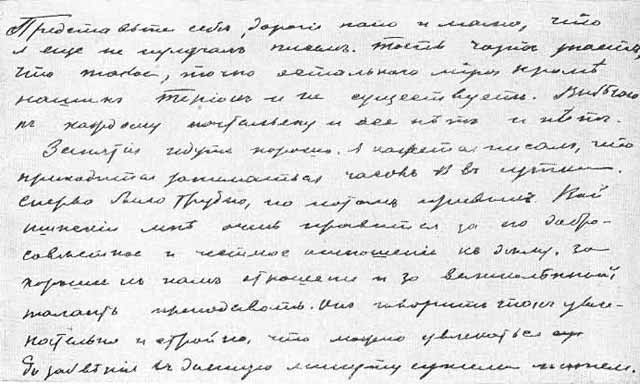 Представьте себѣ, дорогіе папа и мама, что
я еще не получалъ писемъ. Пость чортъ знаетъ,
что такое, точно остального міра кромѣ
нашихъ Теріокъ и не существуетъ. Выбѣгаю
къ каждому почтальону и все нѣтъ и нѣтъ.
Занятія идутъ хорошо. Я кажется писалъ, что
приходится заниматься часовъ въ сутки.
Сперва было трудно, но потомъ привыкъ.
мнѣ очень нравится за его добро-
совѣстное и честное отношеніе къ дѣлу, за
хорошее къ намъ отношение и за великолѣпный
талантъ преподавать. Онъ говоритъ такъ увле-
кательно и стройно, что можно увлекаться
до забвѣнія въ данную минуту